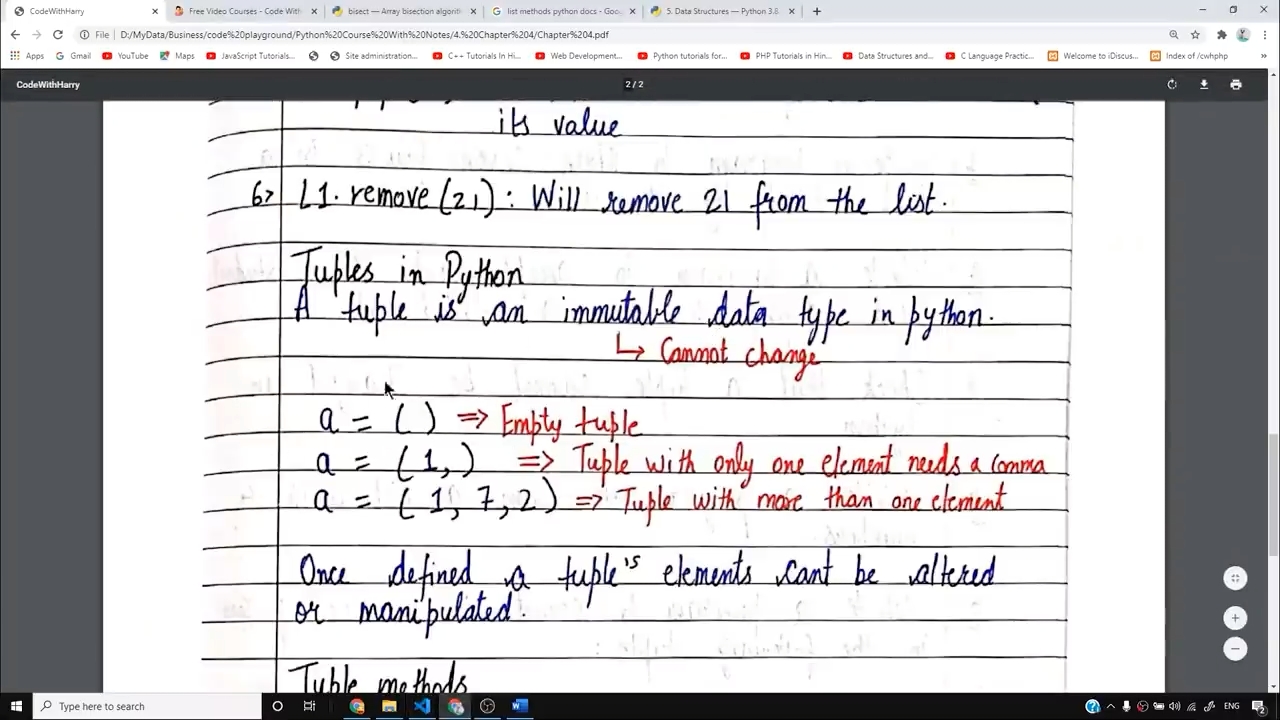 CodeWithHarry
Free Video Courses - Code With
bisect — Array bisection algorith
list methods python docs - Goog
5. Data Structures — Python 3.8.
File
D:/MyData/Business/code%20playground/Python%20Course%20With%20Notes/4.%20Chapter%204/Chapter%204.pdf
Apps
Gmail
YouTube
Maps
JavaScript Tutorials...
Site administration...
C++ Tutorials In Hi...
Web Development...
Python tutorials for...
PHP Tutorials in Hin...
Data Structures and...
C Language Practic...
Welcome to iDiscus...
Index of /cwhphp
CodeWithHarry
2 / 2
its value
6> L1.remove(21) : Will remove 21 from the list.
Tuples in Python
A tuple is an immutable data type in python.
↳ Cannot change
a = ( ) => Empty tuple
a = (1,) => Tuple with only one element needs a comma
a = (1, 7, 2) => Tuple with more than one element
Once defined a tuple's elements cant be altered
or manipulated.
Tuple methods
Type here to search
ENG